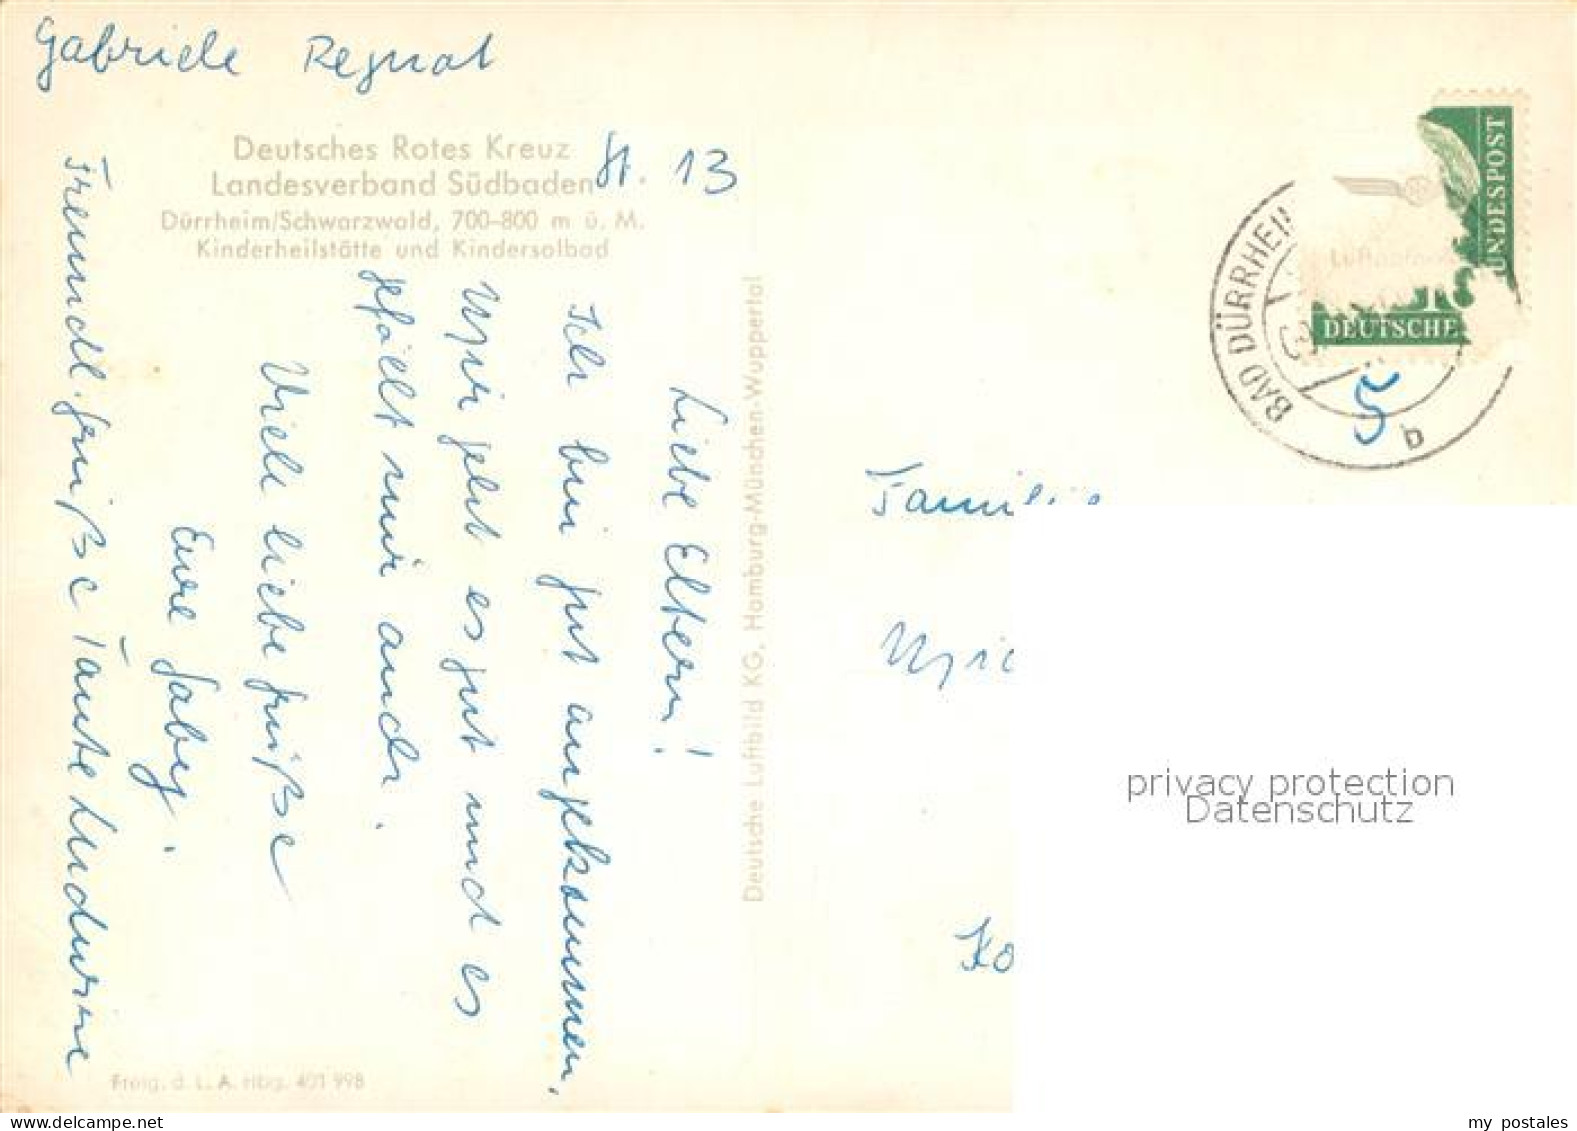 Gabriele Regnat
Deutsches Rotes Kreuz
Landesverband Südbaden
St. 13
Dürrheim/Schwarzwald, 700-800 m ü. M.
Kinderheilstätte und Kindersolbad
Liebe Eltern!
Ich bin gut angekommen,
Mir geht es gut und es
gefällt mir auch.
Viele liebe Grüße
Eure Gaby.
Freundl. Grüße Tante
Freig. d. L. A. Hbg. 401 998
Deutsche Luftbild KG, Hamburg-München-Wuppertal
DEUTSCHE
UNDESPOST
BAD DÜRRHEIM
b
5
Familie
Ko
privacy protection
Datenschutz
my postales